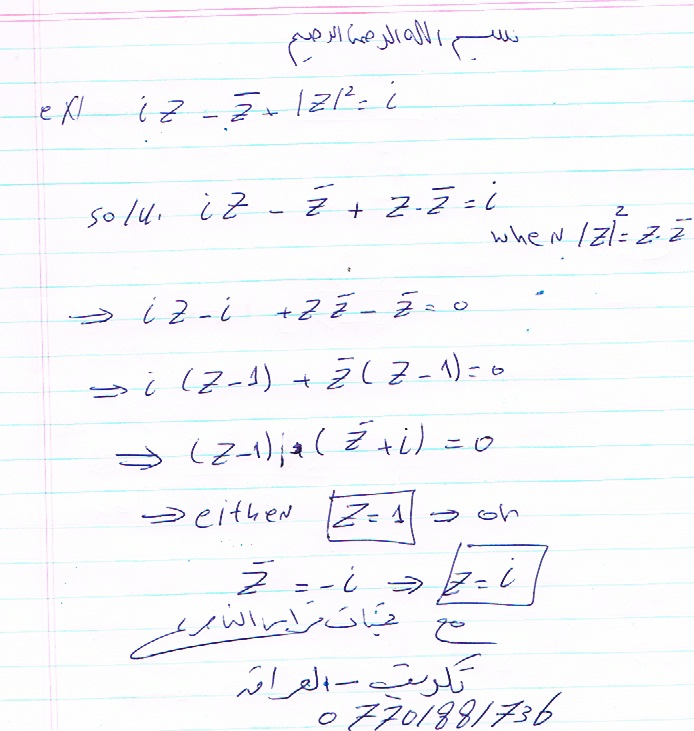 بسم الله الرحمن الرحيم
ex/ iz - z̄ + |z|² = i
solu. iz - z̄ + z·z̄ = i
when |z|² = z·z̄
⇒ iz - i + zz̄ - z̄ = 0
⇒ i (z-1) + z̄ (z-1) = 0
⇒ (z-1) (z̄ + i) = 0
⇒ either z = 1 ⇒ or
z̄ = -i ⇒ z = i
مع تحيات
تكريت - العراق
07701881736